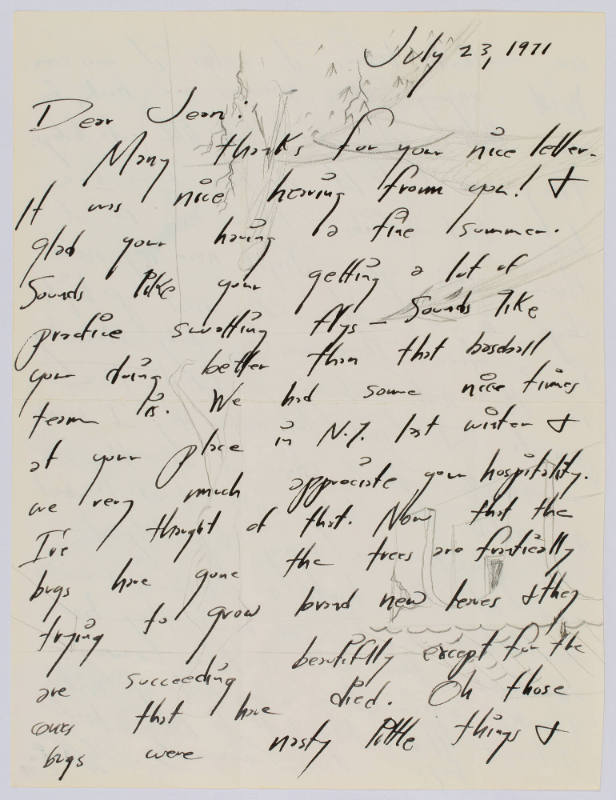 July 23, 1971
Dear Jean:
Many thanks for your nice letter.
It was nice hearing from you! &
glad your having a fine summer.
Sounds like your getting a lot of
practice swatting flys — Sounds like
your doing better than that baseball
team is. We had some nice times
at your place in N.J. last winter &
we very much appreciate your hospitality.
I've thought of that. Now that the
bugs have gone the trees are frantically
trying to grow brand new leaves & they
are succeeding beautifully except for the
ones that have died. Oh those
bugs were nasty little things &